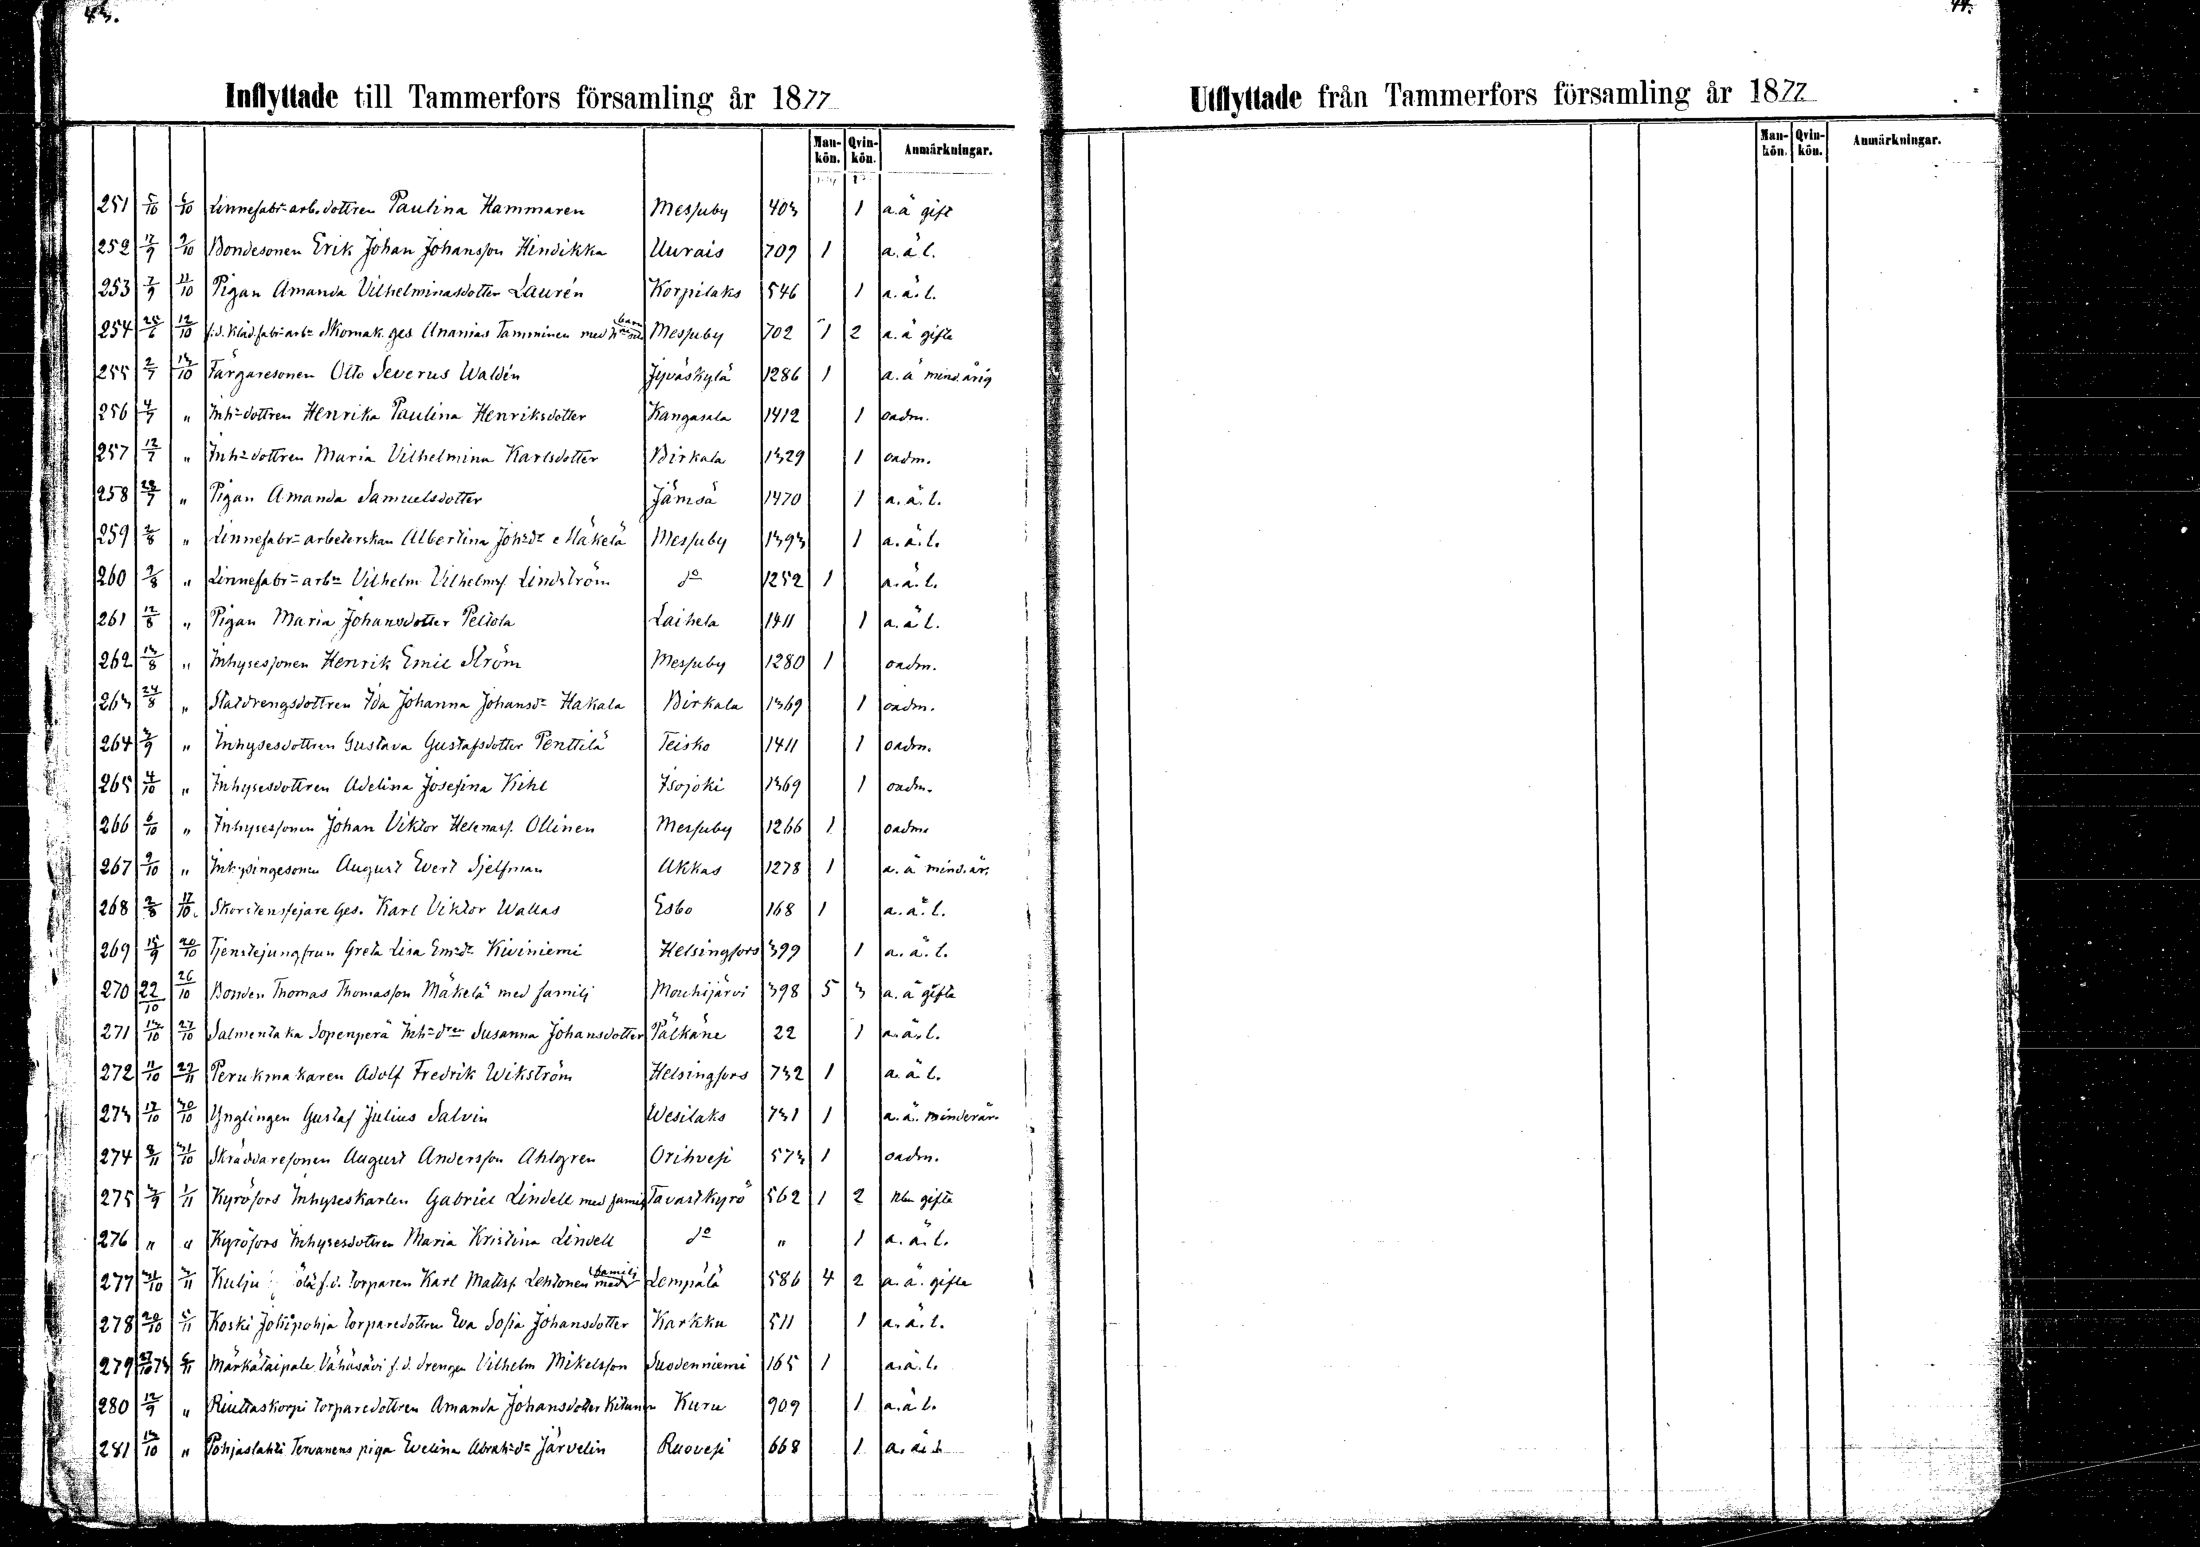 43.
Inflyttade till Tammerfors församling år 1877
Man-kön. Qvin-kön. Anmärkningar.
251 5/10 6/10 Linnefabr arb. dottren Paulina Hammaren Messuby 403 1 a.ä gift
252 17/9 9/10 Bondesonen Erik Johan Johansson Hindikka Uurais 709 1 a.ä l.
253 7/9 11/10 Pigan Amanda Vilhelminasdotter Laurén Korpilaks 546 1 a.ä.l.
254 25/6 12/10 f.d. Kläd.fabr arb Skomak. ges Ananias Tamminen med h barn Messuby 702 1 2 a.ä gifte
255 2/7 13/10 Färgaresonen Otto Severus Waldén Jyväskylä 1286 1 a.ä mind.årig
256 4/7 " Inh dottren Henrika Paulina Henriksdotter Kangasala 1412 1 oadm.
257 12/7 " Inh dottren Maria Vilhelmina Karlsdotter Birkala 1329 1 oadm.
258 28/7 " Pigan Amanda Samuelsdotter Jämsä 1470 1 a.ä.l.
259 2/8 " Linnefabr arbeterskan Albertina Joh dr Mäkelä Messuby 1393 1 a.ä.l.
260 9/8 " Linnefabr arb Vilhelm Vilhelmss. Lindström do 1252 1 a.ä.l.
261 12/8 " Pigan Maria Johansdotter Peltola Laihela 1411 1 a.ä l.
262 13/8 " Inhysessonen Henrik Emil Ström Messuby 1280 1 oadm.
263 24/8 " Statdrengsdottren Ida Johanna Johansdr Hakala Birkala 1369 1 oadm.
264 3/9 " Inhysesdottren Gustava Gustafsdotter Penttilä Teisko 1411 1 oadm.
265 4/10 " Inhysesdottren Adelina Josefina Kihl Isojoki 1369 1 oadm.
266 6/10 " Inhysessonen Johan Viktor Helenass. Ollinen Messuby 1266 1 oadm.
267 9/10 " Inhysingesonen August Evert Sjelfman Akkas 1278 1 a.ä mind.år.
268 2/8 17/10. Skorstensfejare Ges. Karl Viktor Wallas Esbo 168 1 a.ä.l.
269 15/9 20/10 Tjenstejungfrun Greta Lisa Em dr Kiviniemi Helsingfors 399 1 a.ä.l.
270 22/10 26/10 Bonden Thomas Thomasson Mäkelä med familj Mouhijärvi 398 5 3 a.ä gifte
271 13/10 27/10 Salmentaka Sopenperä Inh dren Susanna Johansdotter Pälkäne 22 1 a.ä.l.
272 11/10 29/11 Perukmakaren Adolf Fredrik Wikström Helsingfors 732 1 a.ä l.
273 17/10 30/10 Ynglingen Gustaf Julius Salvin Wesilaks 731 1 a.ä. minderår.
274 8/11 31/10 Skräddaresonen August Andersson Ahlgren Orihvesi 573 1 oadm.
275 3/9 1/11 Kyröfors Inhyseskarlen Gabriel Lindell med familj Tavastkyrö 562 1 2 gifte
276 " " Kyröfors Inhysesdottren Maria Kristina Lindell do " 1 a.ä.l.
277 31/10 3/11 Kulju f.d. torparen Karl Mattss. Lehtonen med familj Lempälä 586 4 2 a.ä. gifte
278 20/10 5/11 Koski Jokipohja torparedottren Eva Sofia Johansdotter Karkku 511 1 a.ä.l.
279 27/10 73 6/11 Märkätaipale Vähäsävi f.d. drengen Vilhelm Mikelsson Suodenniemi 165 1 a.ä.l.
280 12/9 " Riuttaskorpi torparedottren Amanda Johansdotter Kitunen Kuru 909 1 a.ä l.
281 13/10 " Pohjaslahti Tervanens piga Evelina Abrah dr Järvelin Ruovesi 668 1 a.ä.l
44.
Utflyttade från Tammerfors församling år 1877.
Man-kön. Qvin-kön. Anmärkningar.